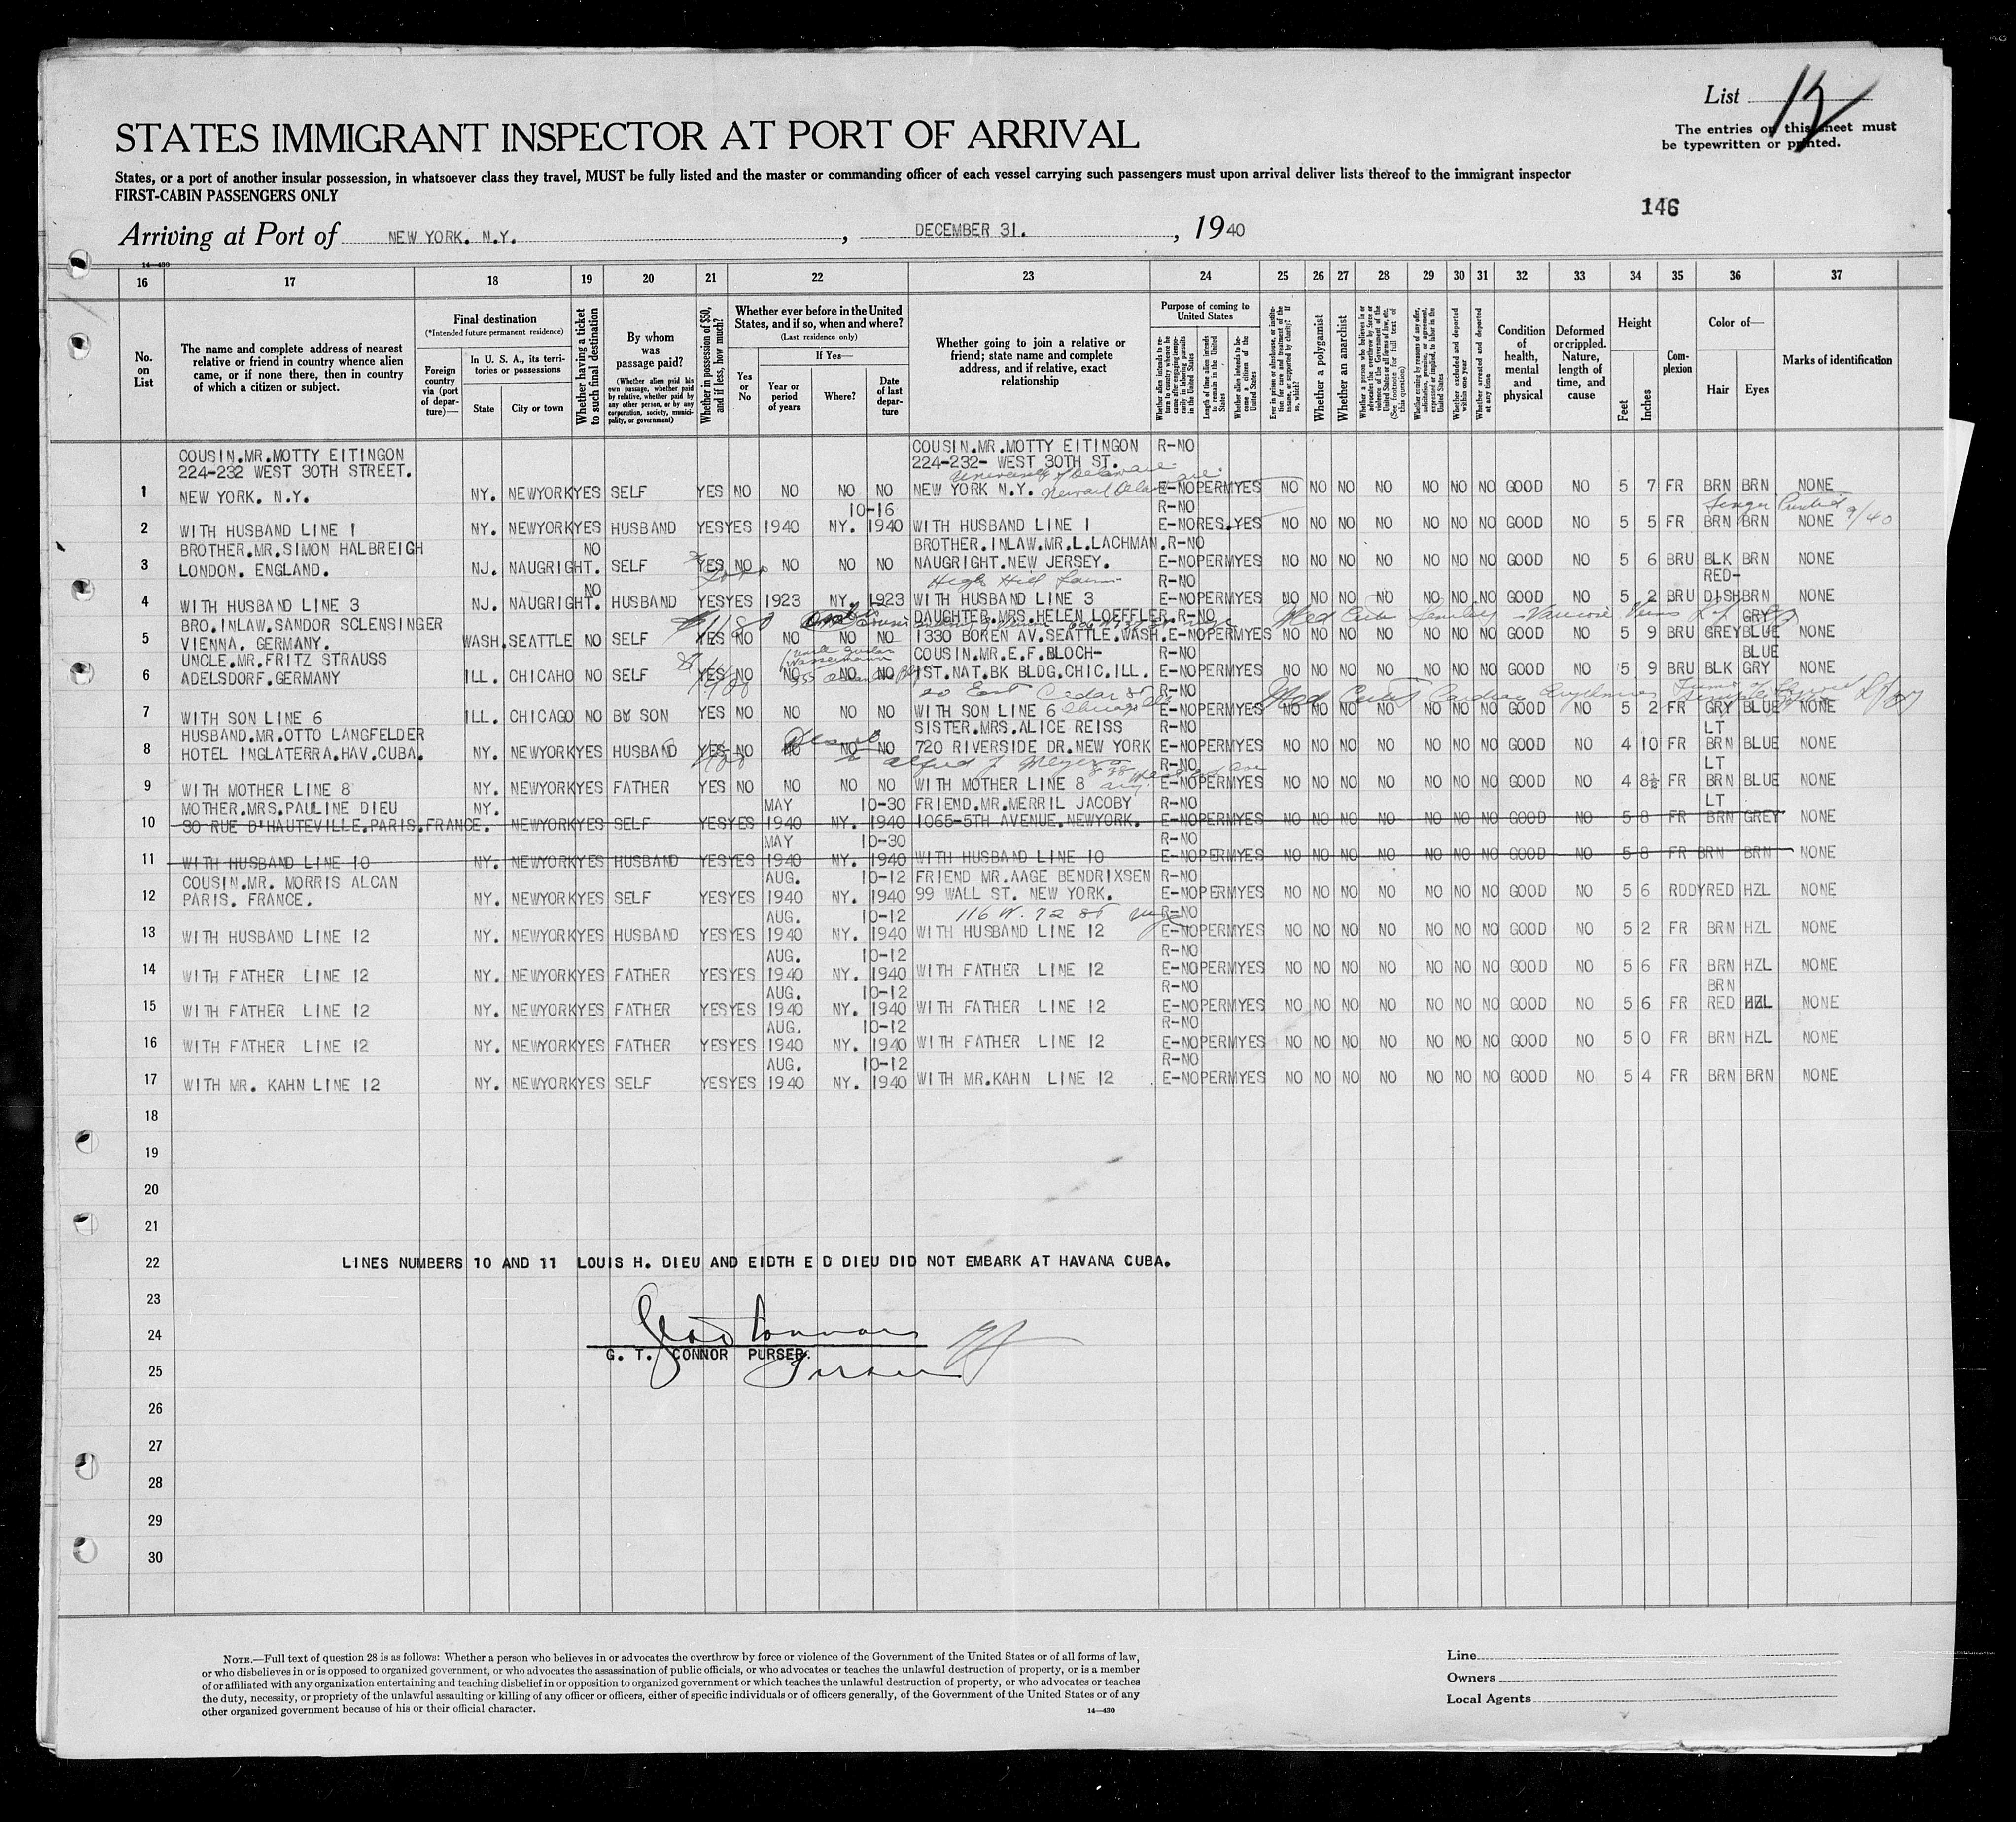 List 12
The entries on this sheet must
be typewritten or printed.
STATES IMMIGRANT INSPECTOR AT PORT OF ARRIVAL
States, or a port of another insular possession, in whatsoever class they travel, MUST be fully listed and the master or commanding officer of each vessel carrying such passengers must upon arrival deliver lists thereof to the immigrant inspector
FIRST-CABIN PASSENGERS ONLY
146
Arriving at Port of NEW YORK. N.Y. , DECEMBER 31. , 1940
14—430
16 17 18 19 20 21 22 23 24 25 26 27 28 29 30 31 32 33 34 35 36 37
No. on List
The name and complete address of nearest relative or friend in country whence alien came, or if none there, then in country of which a citizen or subject.
Final destination
(*Intended future permanent residence)
Foreign country via (port of departure)—
In U. S. A., its territories or possessions
State City or town
Whether having a ticket to such final destination
By whom was passage paid?
(Whether alien paid his own passage, whether paid by relative, whether paid by any other person, or by any corporation, society, municipality, or government)
Whether in possession of $50, and if less, how much?
Whether ever before in the United States, and if so, when and where?
(Last residence only)
Yes or No
If Yes—
Year or period of years Where? Date of last departure
Whether going to join a relative or friend; state name and complete address, and if relative, exact relationship
Purpose of coming to United States
Whether alien intends to return to country whence he came after engaging temporarily in laboring pursuits in the United States
Length of time alien intends to remain in the United States
Whether alien intends to become a citizen of the United States
Ever in prison or almshouse, or institution for care and treatment of the insane, or supported by charity? If so, which?
Whether a polygamist
Whether an anarchist
Whether a person who believes in or advocates the overthrow by force or violence of the Government of the United States or all forms of law, etc. (See footnote for full text of this question)
Whether coming by reason of any offer, solicitation, promise, or agreement, expressed or implied, to labor in the United States
Whether excluded and deported within one year
Whether arrested and deported at any time
Condition of health, mental and physical
Deformed or crippled. Nature, length of time, and cause
Height
Feet Inches
Complexion
Color of—
Hair Eyes
Marks of identification
COUSIN.MR.MOTTY EITINGON COUSIN.MR.MOTTY EITINGON R-NO
224-232 WEST 30TH STREET. 224-232- WEST 30TH ST.
University of Delaware
1 NEW YORK. N.Y. NY. NEWYORK YES SELF YES NO NO NO NO NEW YORK N.Y. Newark Delaware E-NO PERM YES NO NO NO NO NO NO NO GOOD NO 5 7 FR BRN BRN NONE
10-16 R-NO
2 WITH HUSBAND LINE 1 NY. NEWYORK YES HUSBAND YES YES 1940 NY. 1940 WITH HUSBAND LINE 1 E-NO RES. YES NO NO NO NO NO NO NO GOOD NO 5 5 FR BRN BRN NONE 9/40
BROTHER.MR.SIMON HALBREIGH NO BROTHER.INLAW.MR.L.LACHMAN. R-NO
3 LONDON. ENGLAND. NJ. NAUGRIGHT. SELF YES NO NO NO NO NAUGRIGHT.NEW JERSEY. E-NO PERM YES NO NO NO NO NO NO NO GOOD NO 5 6 BRU BLK BRN NONE
NO High Hill Farm R-NO RED-
4 WITH HUSBAND LINE 3 NJ. NAUGRIGHT. HUSBAND YES YES 1923 NY. 1923 WITH HUSBAND LINE 3 E-NO PERM YES NO NO NO NO NO NO NO GOOD NO 5 2 BRU DISH BRN NONE
BRO.INLAW.SANDOR SCLENSINGER DAUGHTER.MRS.HELEN LOEFFLER. R-NO Med Certs GRY
5 VIENNA. GERMANY. WASH. SEATTLE NO SELF YES NO NO NO NO 1330 BOREN AV.SEATTLE.WASH. E-NO PERM YES NO NO NO NO NO NO NO GOOD NO 5 9 BRU GREY BLUE NONE
UNCLE.MR.FRITZ STRAUSS COUSIN.MR.E.F.BLOCH- R-NO BLUE
6 ADELSDORF.GERMANY ILL. CHICAHO NO SELF YES NO NO NO NO 1ST.NAT.BK BLDG.CHIC.ILL. E-NO PERM YES NO NO NO NO NO NO NO GOOD NO 5 9 BRU BLK GRY NONE
20 East Cedar St R-NO Med Certs Cardiac
7 WITH SON LINE 6 ILL. CHICAGO NO BY SON YES NO NO NO NO WITH SON LINE 6 Chicago E-NO PERM YES NO NO NO NO NO NO NO GOOD NO 5 2 FR GRY BLUE NONE
HUSBAND.MR.OTTO LANGFELDER SISTER.MRS.ALICE REISS R-NO LT
8 HOTEL INGLATERRA.HAV.CUBA. NY. NEWYORK YES HUSBAND YES NO NO NO NO 720 RIVERSIDE DR.NEW YORK E-NO PERM YES NO NO NO NO NO NO NO GOOD NO 4 10 FR BRN BLUE NONE
Alfred J Meyers R-NO LT
9 WITH MOTHER LINE 8 NY. NEWYORK YES FATHER YES NO NO NO NO WITH MOTHER LINE 8 E-NO PERM YES NO NO NO NO NO NO NO GOOD NO 4 8½ FR BRN BLUE NONE
MOTHER.MRS.PAULINE DIEU NY. MAY 10-30 FRIEND.MR.MERRIL JACOBY R-NO LT
10 30 RUE D'HAUTEVILLE.PARIS.FRANCE. NEWYORK YES SELF YES YES 1940 NY. 1940 1065-5TH AVENUE.NEWYORK. E-NO PERM YES NO NO NO NO NO NO NO GOOD NO 5 8 FR BRN GREY NONE
MAY 10-30 R-NO
11 WITH HUSBAND LINE 10 NY. NEWYORK YES HUSBAND YES YES 1940 NY. 1940 WITH HUSBAND LINE 10 E-NO PERM YES NO NO NO NO NO NO NO GOOD NO 5 8 FR BRN BRN NONE
COUSIN.MR. MORRIS ALCAN AUG. 10-12 FRIEND MR.AAGE BENDRIXSEN R-NO
12 PARIS. FRANCE. NY. NEWYORK YES SELF YES YES 1940 NY. 1940 99 WALL ST. NEW YORK. E-NO PERM YES NO NO NO NO NO NO NO GOOD NO 5 6 RDDY RED HZL NONE
AUG. 10-12 116 W. 72 St R-NO
13 WITH HUSBAND LINE 12 NY. NEWYORK YES HUSBAND YES YES 1940 NY. 1940 WITH HUSBAND LINE 12 E-NO PERM YES NO NO NO NO NO NO NO GOOD NO 5 2 FR BRN HZL NONE
AUG. 10-12 R-NO
14 WITH FATHER LINE 12 NY. NEWYORK YES FATHER YES YES 1940 NY. 1940 WITH FATHER LINE 12 E-NO PERM YES NO NO NO NO NO NO NO GOOD NO 5 6 FR BRN HZL NONE
AUG. 10-12 R-NO BRN
15 WITH FATHER LINE 12 NY. NEWYORK YES FATHER YES YES 1940 NY. 1940 WITH FATHER LINE 12 E-NO PERM YES NO NO NO NO NO NO NO GOOD NO 5 6 FR RED HZL NONE
AUG. 10-12 R-NO
16 WITH FATHER LINE 12 NY. NEWYORK YES FATHER YES YES 1940 NY. 1940 WITH FATHER LINE 12 E-NO PERM YES NO NO NO NO NO NO NO GOOD NO 5 0 FR BRN HZL NONE
AUG. 10-12 R-NO
17 WITH MR. KAHN LINE 12 NY. NEWYORK YES SELF YES YES 1940 NY. 1940 WITH MR.KAHN LINE 12 E-NO PERM YES NO NO NO NO NO NO NO GOOD NO 5 4 FR BRN BRN NONE
18
19
20
21
22 LINES NUMBERS 10 AND 11 LOUIS H. DIEU AND EIDTH E D DIEU DID NOT EMBARK AT HAVANA CUBA.
23
24
G. T. CONNOR PURSER.
25 Purser
26
27
28
29
30
NOTE.—Full text of question 28 is as follows: Whether a person who believes in or advocates the overthrow by force or violence of the Government of the United States or of all forms of law,
or who disbelieves in or is opposed to organized government, or who advocates the assassination of public officials, or who advocates or teaches the unlawful destruction of property, or is a member
of or affiliated with any organization entertaining and teaching disbelief in or opposition to organized government or which teaches the unlawful destruction of property, or who advocates or teaches
the duty, necessity, or propriety of the unlawful assaulting or killing of any officer or officers, either of specific individuals or of officers generally, of the Government of the United States or of any
other organized government because of his or their official character.
14—430
Line
Owners
Local Agents